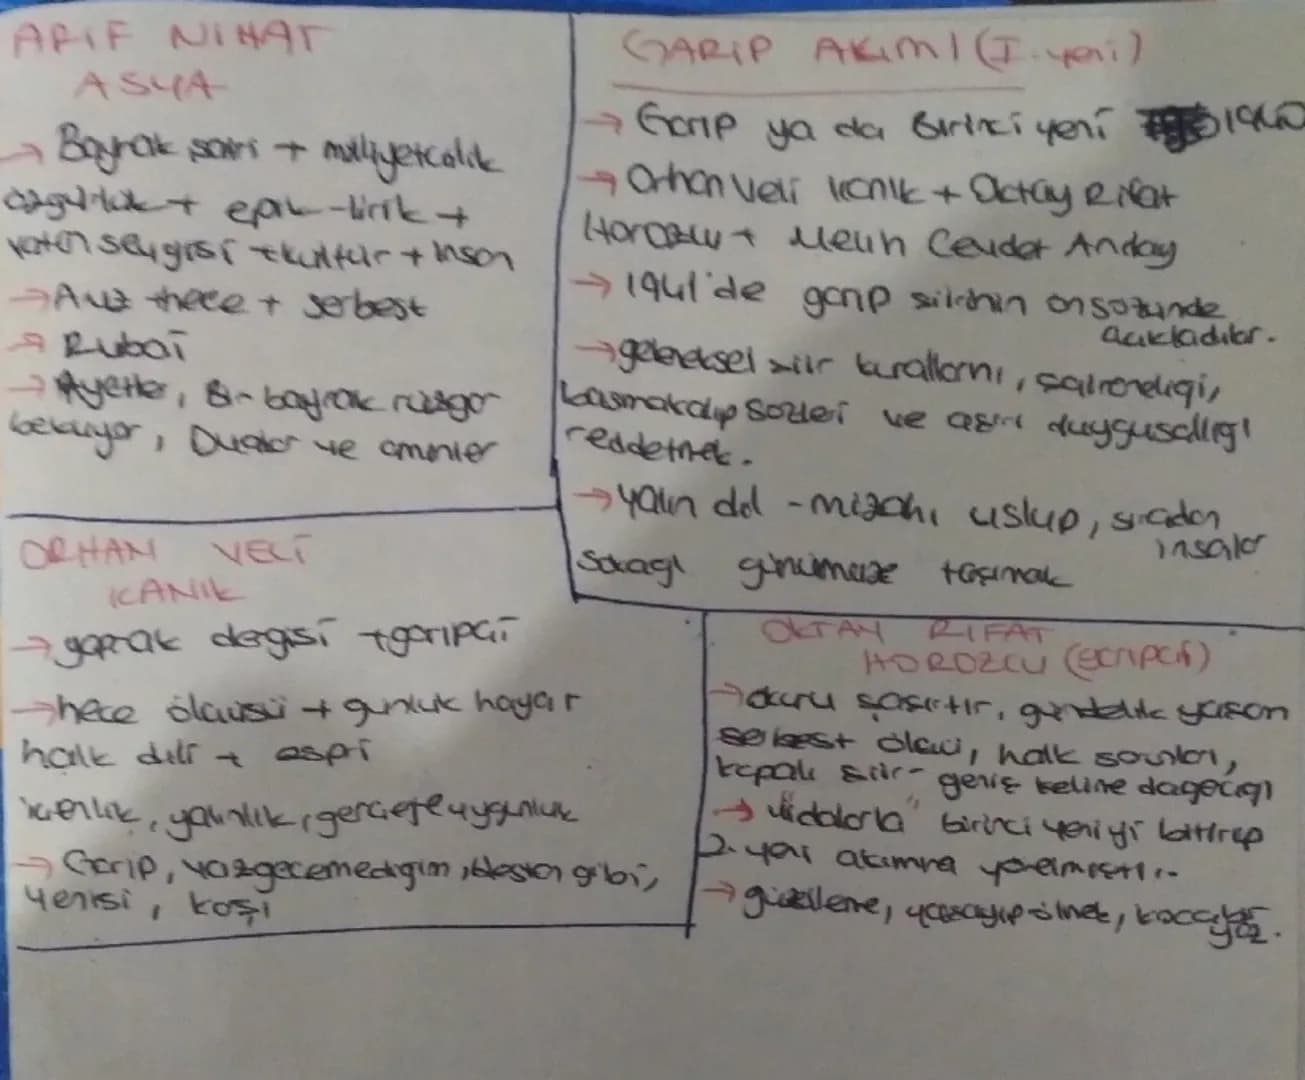 ARIF NIHAT
ASYA
→ Bayrak şairi + milliyetcilik
özgürlük + epik-lirik +
vatan sevgisi + kültür + insan
→ Aruz + hece + serbest
→ Rubai
→ Ayetler, Bir bayrak rüzgar
bekliyor, Dualar ve aminler
GARIP AKIMI (I. yeni)
→ Garip ya da Birinci yeni 1940
→ Orhan Veli Kanık + Oktay Rifat
Horozcu + Melih Cevdet Anday
→ 1941'de garip siirinin önsözünde
acıkladılar.
→ geleneksel siir kurallarnı, şairaneliği,
basmakalıp sözleri ve aşırı duygusallığı
reddetmek.
→ yalın dil - mizahi uslup, sıradan
insalar
Sokağı günümüze taşımak
ORHAN VELİ
KANIK
→ yaprak dergisi + garipçi
→ hece ölçüsü + günlük hayat
halk dili + espri
içtenlik, yalınlık, gerçeğe uygunluk
→ Garip, vazgecemedigim, destan gibi,
yenisi, karşı
OKTAY RIFAT
HOROZCU (garipci)
→ duru şaşırtır, gündelik yaşam
serbest ölçü, halk
kapalı şiir - geniş kelime dagarcıgı
→ "  " birinci yeniyi bitirip
2. yeni akımına yönelmiştir.
→ güzelleme, yaşayıp ölmek,